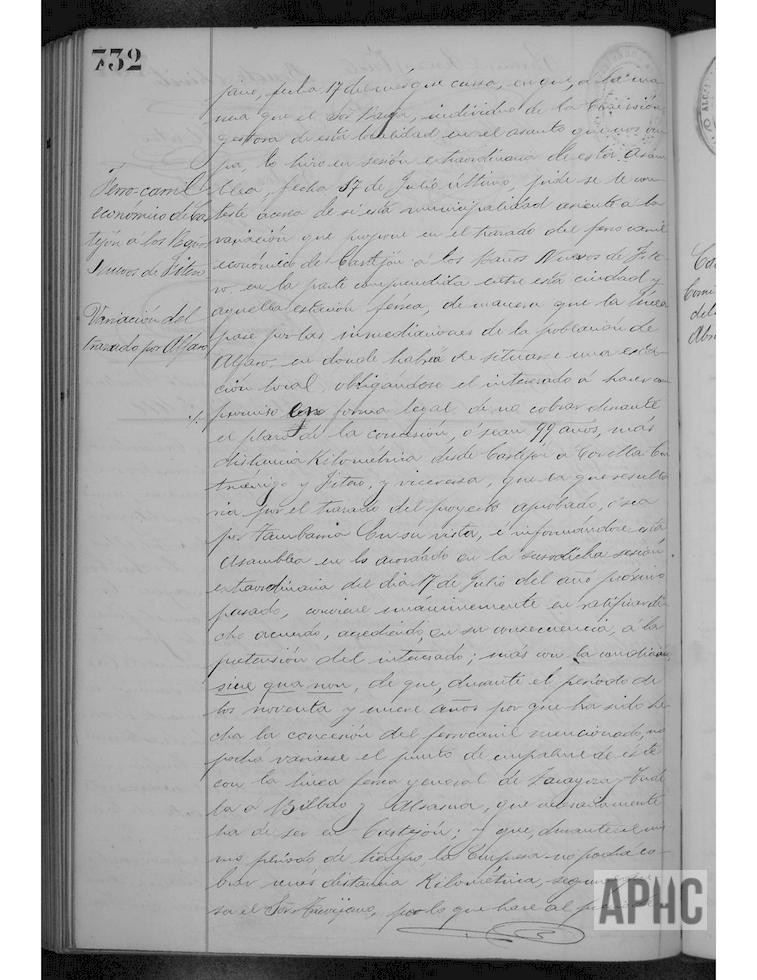 732
jano, fecha 17 del mes que cursa, en que, a la ma
nera que el Sor , individuo de la Comisión
gestora de esta localidad en el asunto que nos ocu
pa, lo hizo en sesión extraordinaria de esta Asam
blea, fecha 17 de Julio último, pide se le con
teste acerca de si esta municipalidad asiente á la
variación que propone en el trazado del ferrocarril
económico de Castejón á los Baños Nuevos de Fite
ro, en la parte comprendida entre esta ciudad y
aquella estación férrea, de manera que la línea
pase por las inmediaciones de la población de
Alfaro, en donde habrá de situarse una esta
ción local, obligándose el interesado á hacer com
promiso en forma legal de no cobrar durante
el plazo de la concesión, ó sean 99 años, más
distancia kilométrica desde Castejón a Corella Cin
truénigo y Fitero, y viceversa, que la que resulta
ria por el trazado del proyecto aprobado, ó sea
por Tambarria En su vista, é informándose esta
Asamblea en lo acordado en la susodicha sesión
extraordinaria del dia 17 de Julio del año próximo
pasado, conviene unánimemente en ratificar di
cho acuerdo, accediendo, en su consecuencia, á la
pretensión del interesado; más con la condición,
sine qua non, de que, durante el periodo de
los noventa y nueve años por que ha sido he
cha la concesión del ferrocarril mencionado, no
podrá variarse el punto de empalme de éste
con la línea férrea general de Zaragoza-Tude
la á Bilbao y Alsasua, que necesariamente
ha de ser en Castejón; y que, durante el mis
mo período de tiempo, la Empresa no podrá co
brar más distancia kilométrica, segun
sa el Sor Trevijano, por lo que hace al
Ferro-carril
económico de Cas
tejón á los Baños
Nuevos de Fitero
Variación del
trazado por Alfaro
APHC